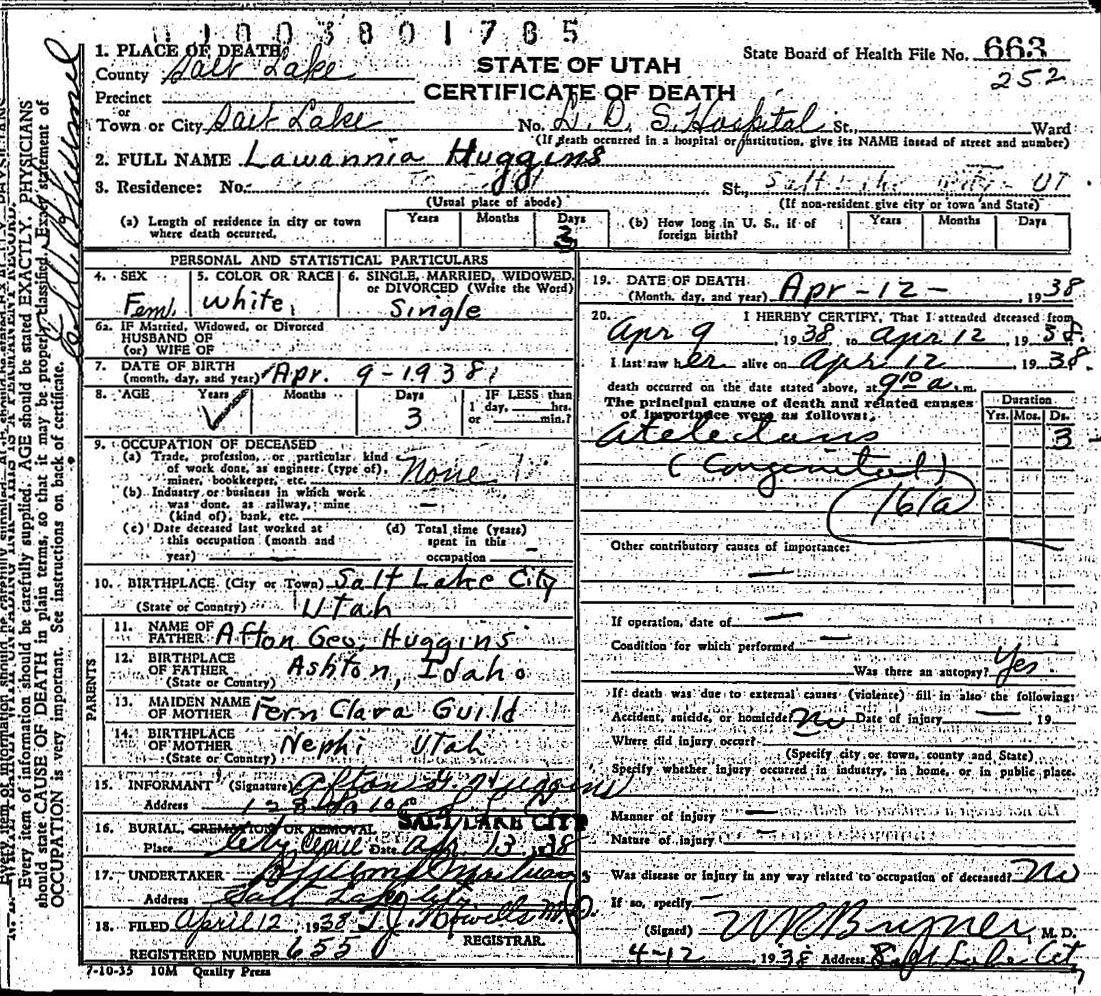 1003801785
1. PLACE OF DEATH:
County Salt Lake
Precinct
or
Town or City Salt Lake
State Board of Health File No. 663
252
STATE OF UTAH
CERTIFICATE OF DEATH
No. L. D. S. Hospital St., Ward
(If death occurred in a hospital or institution, give its NAME instead of street and number)
2. FULL NAME Lawannia Huggins
3. Residence: No. St., Salt Lake City - UT
(Usual place of abode) (If non-resident give city or town and State)
(a) Length of residence in city or town where death occurred. Years Months Days 3
(b) How long in U. S., if of foreign birth? Years Months Days
PERSONAL AND STATISTICAL PARTICULARS
4. SEX Feml.
5. COLOR OR RACE White.
6. SINGLE, MARRIED, WIDOWED, or DIVORCED (Write the Word) Single
6a. IF Married, Widowed, or Divorced
HUSBAND OF
(or) WIFE OF
7. DATE OF BIRTH
(month, day, and year) Apr. 9-1938
8. AGE Years Months Days 3 IF LESS than
1 day, hrs.
or min.?
9. OCCUPATION OF DECEASED
(a) Trade, profession, or particular kind
of work done, as engineer (type of),
miner, bookkeeper, etc. None
(b) Industry or business in which work
was done, as railway, mine
(kind of), bank, etc. —
(c) Date deceased last worked at
this occupation (month and
year)
(d) Total time (years)
spent in this
occupation —
10. BIRTHPLACE (City or Town) Salt Lake City
(State or Country) Utah
PARENTS
11. NAME OF
FATHER Afton Geo. Huggins
12. BIRTHPLACE
OF FATHER Ashton, Idaho
(State or Country)
13. MAIDEN NAME
OF MOTHER Fern Clara Guild
14. BIRTHPLACE
OF MOTHER Nephi Utah
(State or Country)
15. INFORMANT (Signature) Afton G. Huggins
Address
16. BURIAL, CREMATION OR REMOVAL SALT LAKE CITY
Place City Date Apr 13 1938
17. UNDERTAKER Mortuary
Address Salt Lake City
18. FILED April 12, 1938 T. J. Howells M.D.
REGISTRAR.
REGISTERED NUMBER 655
7-10-35 10M Quality Press
19. DATE OF DEATH
(Month, day, and year) Apr - 12 - , 1938
20. I HEREBY CERTIFY, That I attended deceased from
Apr 9, 1938, to Apr 12, 1938.
I last saw her alive on Apr 12, 1938.
death occurred on the date stated above, at 9 10 a.m.
The principal cause of death and related causes
of importance were as follows:
Duration
Yrs. Mos. Ds.
Atelectasis 3
(Congenital)
161a
Other contributory causes of importance:
—
If operation, date of —
Condition for which performed —
Was there an autopsy? Yes
If death was due to external causes (violence) fill in also the following:
Accident, suicide, or homicide? No Date of injury — 19
Where did injury occur?
(Specify city or town, county and State)
Specify whether injury occurred in industry, in home, or in public place.
Manner of injury —
Nature of injury
Was disease or injury in any way related to occupation of deceased? No
If so, specify —
(Signed) W R Bryner, M. D.
4-12 1938 Address Salt Lake City
Every item of information should be carefully supplied. AGE should be stated EXACTLY. PHYSICIANS
should state CAUSE OF DEATH in plain terms, so that it may be properly classified. Exact statement of
OCCUPATION is very important. See instructions on back of certificate.